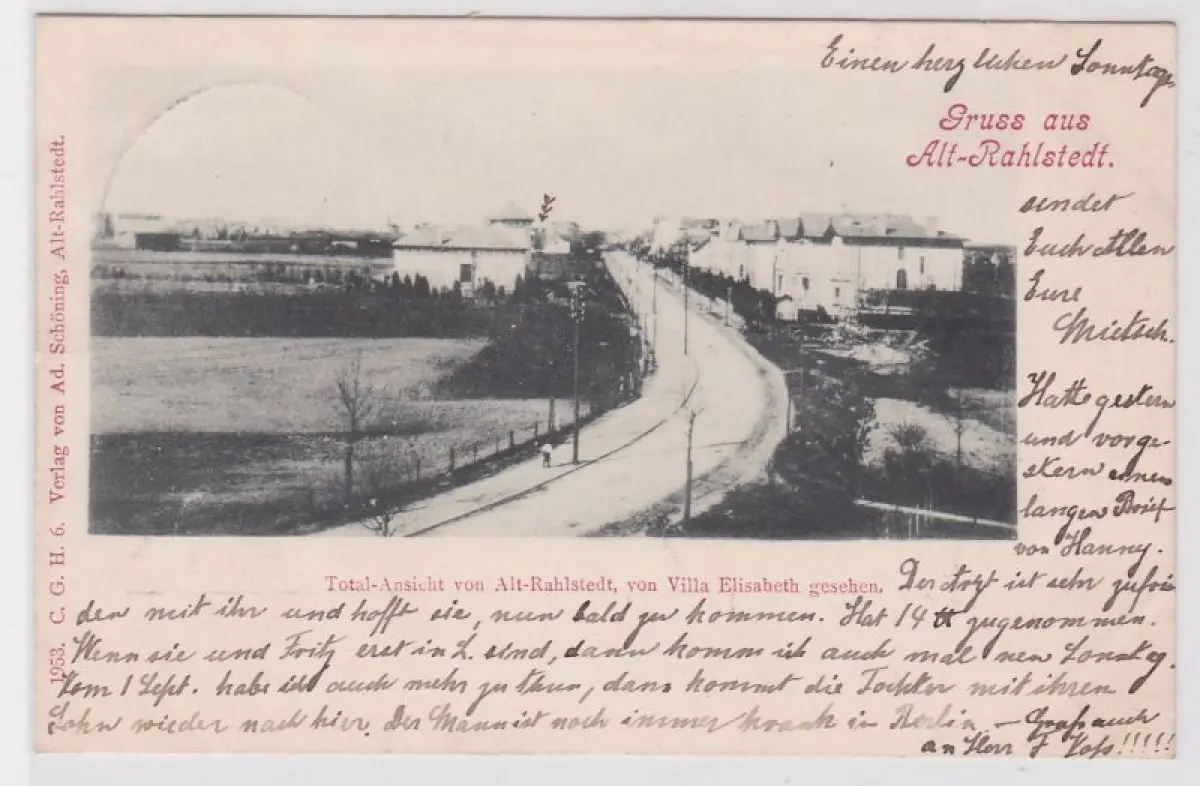 Einen herzlichen Sonntags
Gruss aus
Alt-Rahlstedt.
sendet
Euch Allen
Eure
Mietsch.
Hatte gestern
und vorge-
stern einen
langen Brief
von Hanny.
Total-Ansicht von Alt-Rahlstedt, von Villa Elisabeth gesehen.
Der Arzt ist sehr zufrie
den mit ihr und hofft sie, nun bald zu kommen. Hat 14 ℔ zugenommen.
Wenn sie und Fritz erst in L. sind, dann komm ich auch mal nen Sonntag.
Vom 1 Sept. habe ich auch mehr zu thun, dann kommt die Tochter mit ihren
Sohn wieder nach hier. Der Mann ist noch immer krank in Berlin. – Gruß auch
an Herr F Voss!!!!!
1953. C. G. H. 6. Verlag von Ad. Schöning, Alt-Rahlstedt.